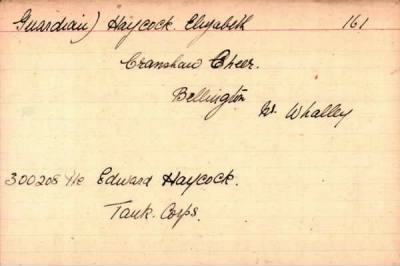 Guardian) Haycock. Elizabeth 161
Cranshaw Cheer.
Bellington
Nr. Whalley
300208 Edward Haycock.
Tank. Corps.